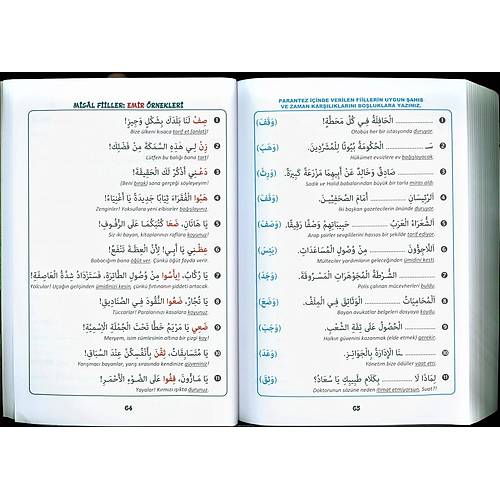 MİSÂL FİİLLER: EMİR ÖRNEKLERİ
❶ صِفْ لَنَا بَلَدَكَ بِشَكْلٍ وَجِيزٍ!
Bize ülkeni kısaca tarif et (anlat)!
❷ زِنْ لِي هَذِهِ السَّمَكَةَ مِنْ فَضْلِكَ!
Lütfen bu balığı bana tart!
❸ دَعْنِي أَذْكُرْ لَكَ الْحَقِيقَةَ!
(Beni) bırak sana gerçeği söyleyeyim!
❹ هَبُوا الْفُقَرَاءَ ثِيَابًا جَدِيدَةً يَا أَغْنِيَاءُ!
Zenginler! Yoksullara yeni elbiseler bağışlayınız.
❺ يَا هَاتَانِ، ضَعَا كُتُبَكُمَا عَلَى الرُّفُوفِ!
Siz iki bayan, kitaplarınızı raflara koyunuz!
❻ عِظْنِي يَا أَبِي! لِأَنَّ الْعِظَةَ تَنْفَعُ!
Babacığım bana öğüt ver. Çünkü öğüt fayda verir.
❼ يَا رُكَّابُ، اِيأَسُوا مِنْ وُصُولِ الطَّائِرَةِ، فَسَتَزْدَادُ شِدَّةُ الْعَاصِفَةِ!
Yolcular! Uçağın gelişinden ümidinizi kesin, çünkü fırtınanın şiddeti artacak.
❽ يَا تُجَّارُ، ضَعُوا النُّقُودَ فِي الصَّنَادِيقِ!
Tüccarlar! Paraları kasalara koyunuz.
❾ ضَعِي يَا مَرْيَمُ خَطًّا تَحْتَ الْجُمْلَةِ الْاِسْمِيَّةِ!
Meryem, isim cümlesinin altına bir çizgi koy!
❿ يَا مُتَسَابِقَاتُ، ثِقْنَ بِأَنْفُسِكُنَّ عِنْدَ السِّبَاقِ!
Yarışmacı bayanlar, yarış sırasında kendinize güveniniz!
⓫ يَا مَارُّونَ، قِفُوا عَلَى الضَّوْءِ الْأَحْمَرِ!
Yayalar! Kırmızı ışıkta durunuz.
64
PARANTEZ İÇİNDE VERİLEN FİİLLERİN UYGUN ŞAHIS
VE ZAMAN KARŞILIKLARINI BOŞLUKLARA YAZINIZ.
❶ ............ الْحَافِلَةُ فِي كُلِّ مَحَطَّةٍ! (وَقَفَ)
Otobüs her bir istasyonda duruyor.
❷ سَـ ............ الْحُكُومَةُ بُيُوتًا لِلْمُشَرَّدِينَ. (وَهَبَ)
Hükümet evsizlere ev bağışlayacak.
❸ ............ صَادِقٌ وَخَالِدٌ عَنْ أَبِيهِمَا مَزْرَعَةً كَبِيرَةً. (وَرِثَ)
Sadık ve Halid babalarından büyük bir tarla miras aldı.
❹ ............ الرَّئِيسَانِ أَمَامَ الصَّحَفِيِّينَ. (وَقَفَ)
İki başkan gazetecilerin önünde duruyor.
❺ ............ الشُّعَرَاءُ الْعَرَبُ حَبِيبَاتِهِمْ وَصْفًا رَقِيقًا. (وَصَفَ)
Arap şairler sevgililerini hassas bir şekilde tarif ediyor.
❻ ............ اللَّاجِؤُونَ مِنْ وُصُولِ الْمُسَاعَدَاتِ. (يَئِسَ)
Mülteciler yardımların geleceğinden ümidini kesti.
❼ ............ الشُّرْطَةُ الْمُجَوْهَرَاتِ الْمَسْرُوقَةَ. (وَجَدَ)
Polis çalınan mücevherleri buldu.
❽ ............ الْمُحَامِيَاتُ الْوَثَائِقَ فِي الْمِلَفِّ. (وَضَعَ)
Bayan avukatlar belgeleri dosyaya koydu.
❾ ............ الْحُصُولُ عَلَى ثِقَةِ الشَّعْبِ. (وَجَبَ)
Halkın güvenini kazanmak gerekir.
❿ ............ نَا الْإِدَارَةُ بِالْجَوَائِزِ. (وَعَدَ)
Yönetim bize ödüller vaat etti.
⓫ لِمَاذَا لَا ............ بِكَلَامِ طَبِيبِكِ يَا سُعَادُ؟ (وَثِقَ)
Doktorunun sözüne neden itimat etmiyorsun, Suat?!
65